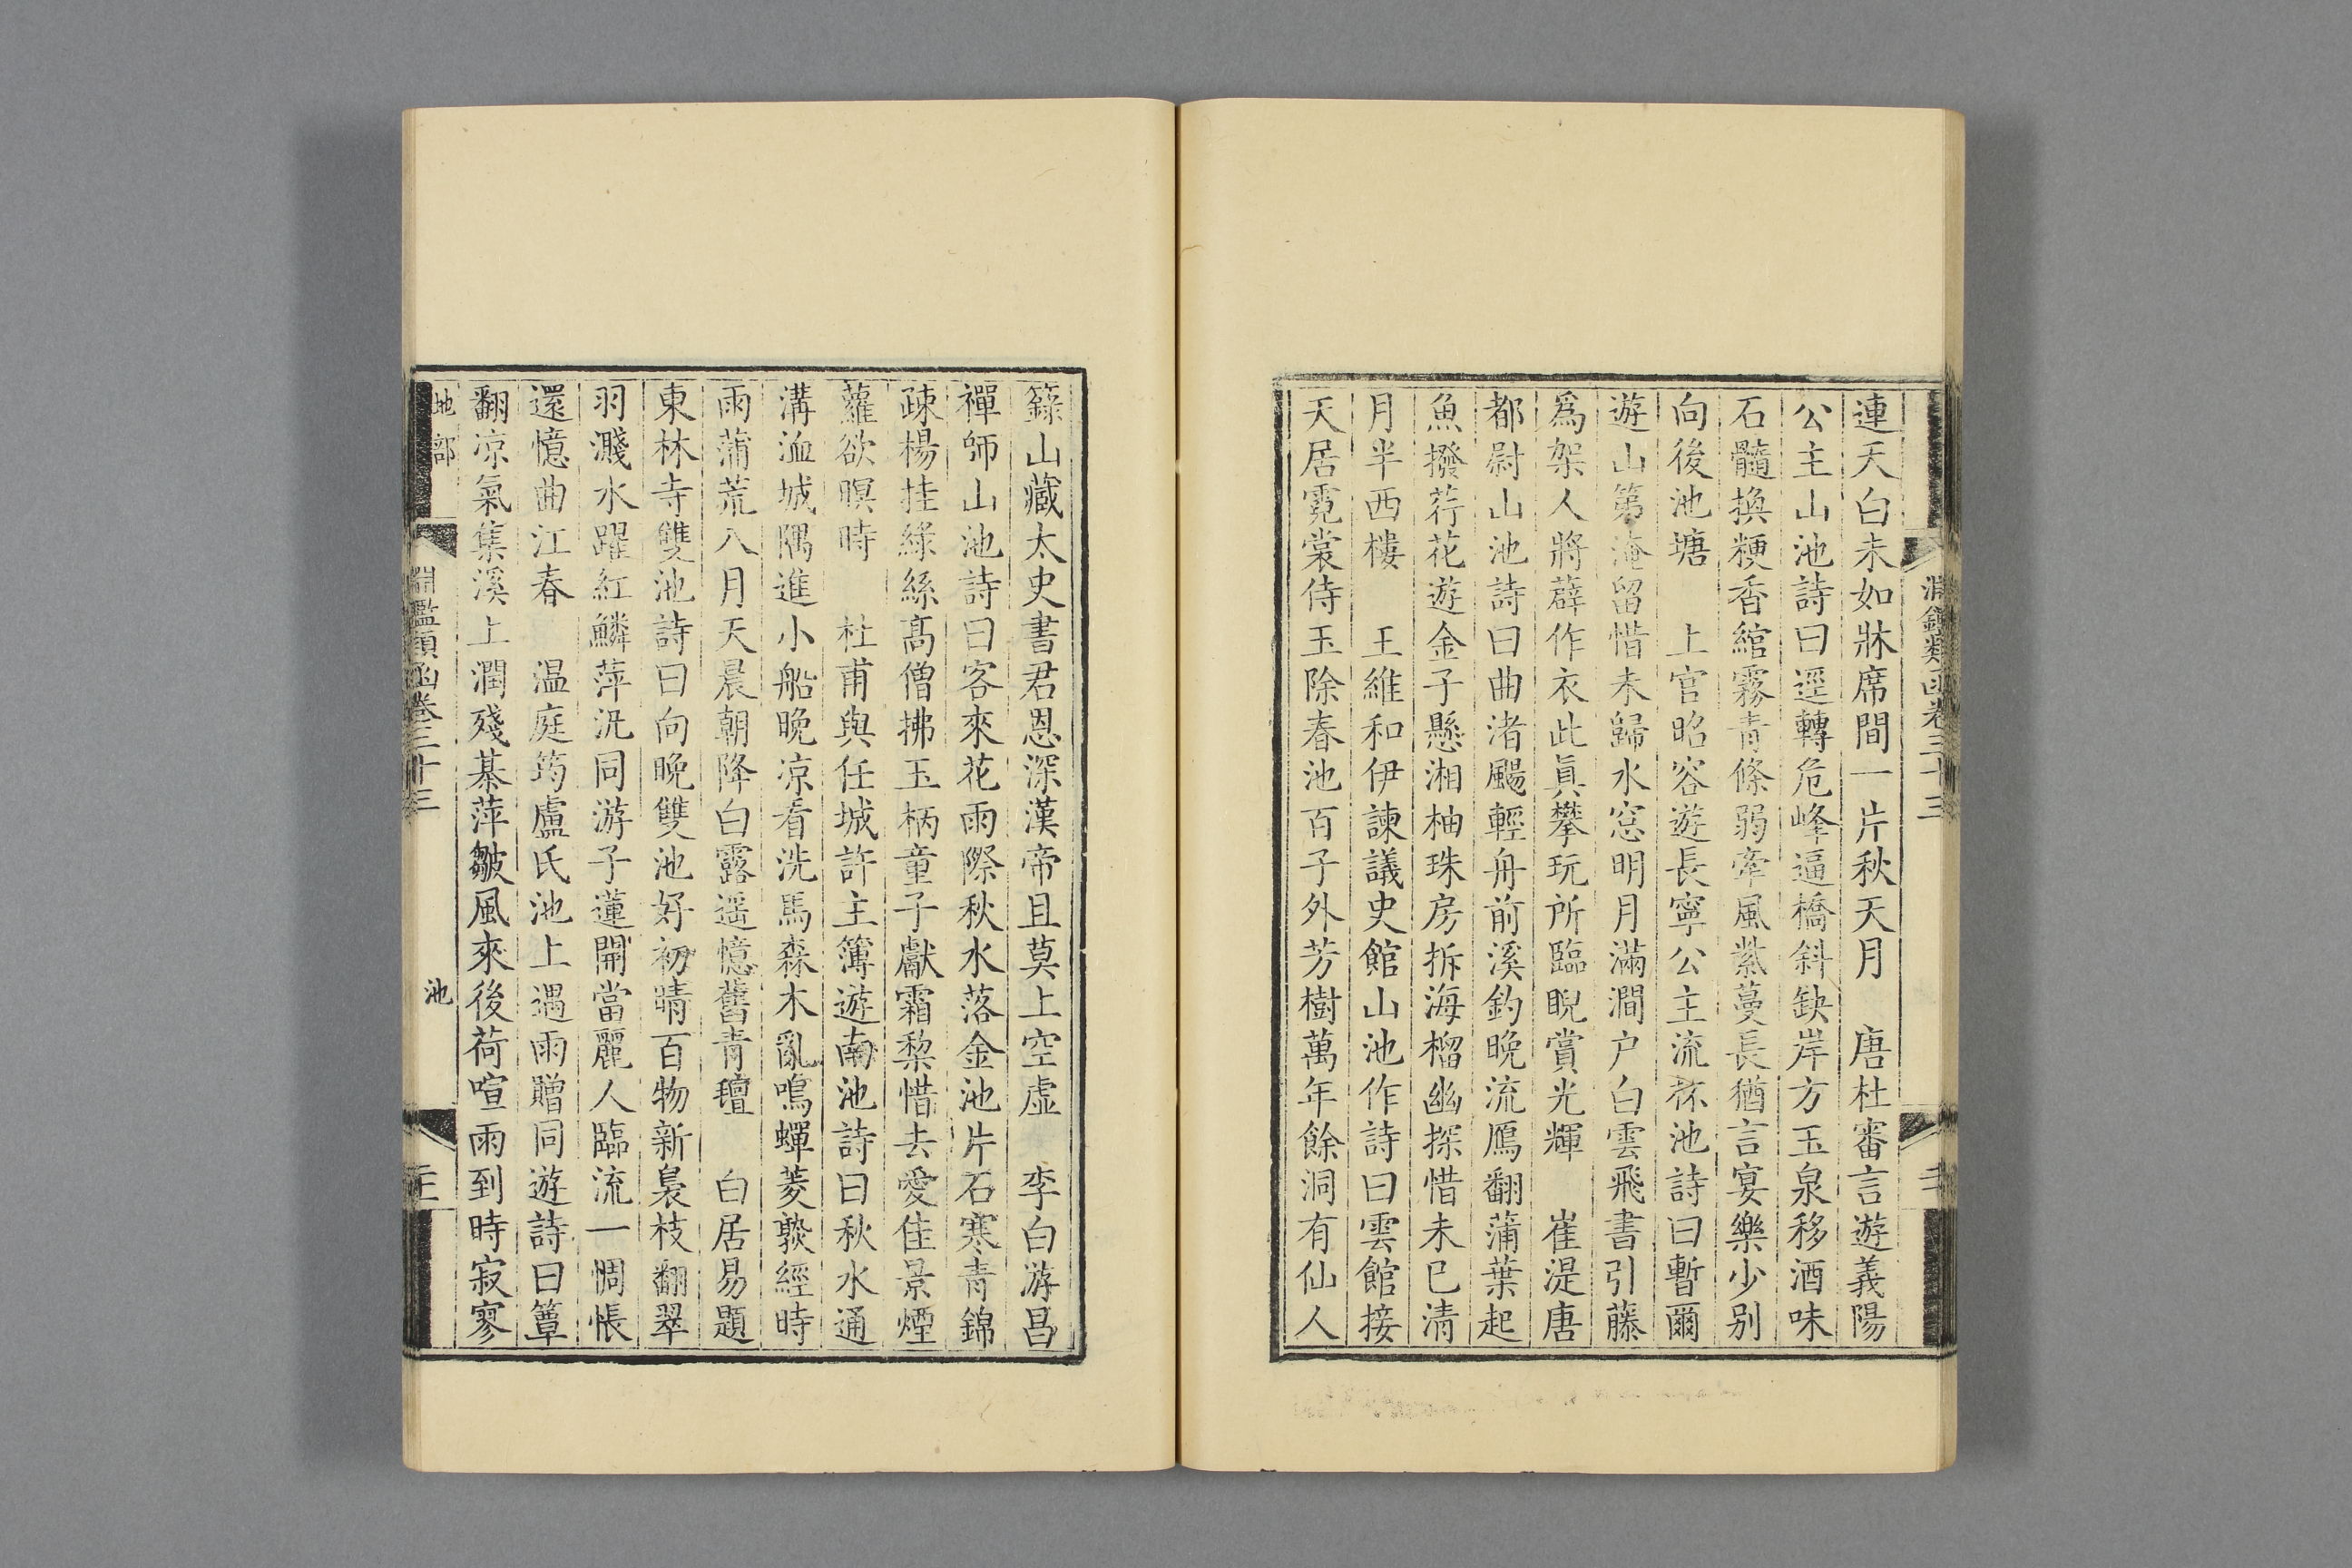 淵鑑類函卷三十三
連天白未如牀席間一片秋天月　唐杜審言遊義陽
公主山池詩曰逕轉危峰逼橋斜缺岸方玉泉移酒味
石髓換粳香綰霧青條弱牽風紫蔓長猶言宴樂少别
向後池塘　上官昭容遊長寧公主流杯池詩曰暫爾
遊山第淹留惜未歸水窓明月滿澗户白雲飛書引藤
爲架人將薜作衣此眞攀玩所臨睨賞光輝　崔湜唐
都尉山池詩曰曲渚颺輕舟前溪釣晚流鴈翻蒲葉起
魚撥荇花遊金子懸湘柚珠房拆海榴幽探惜未已清
月半西樓　王維和伊諫議史館山池作詩曰雲館接
天居霓裳侍玉除春池百子外芳樹萬年餘洞有仙人
籙山藏太史書君恩深漢帝且莫上空虛　李白游昌
禪師山池詩曰客來花雨際秋水落金池片石寒青錦
疎楊挂綠絲髙僧拂玉柄童子獻霜棃惜去愛佳景煙
蘿欲暝時　杜甫與任城許主簿遊南池詩曰秋水通
溝洫城隅進小船晚凉看洗馬森木亂鳴蟬菱熟經時
雨蒲荒八月天晨朝降白露遥憶舊青氊　白居易題
東林寺雙池詩曰向晚雙池好初晴百物新裊枝翻翠
羽濺水躍紅鱗萍泛同游子蓮開當麗人臨流一惆悵
還憶曲江春　温庭筠盧氏池上遇雨贈同遊詩曰簟
翻凉氣集溪上潤殘棊萍皺風來後荷喧雨到時寂寥
地部
淵鑑類函卷三十三
池